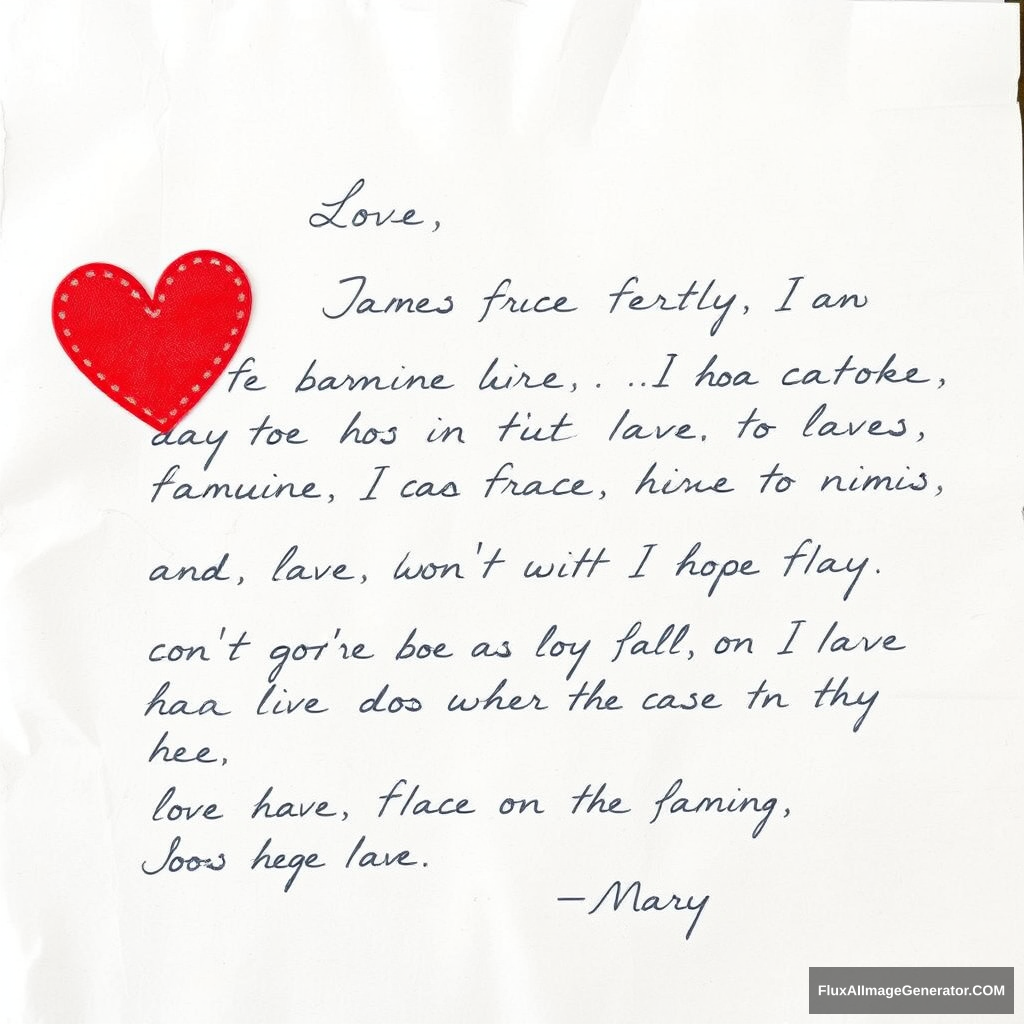 Love,
James fruce fertly, I an
fe barmine lire, . ...I hoa catoke,
day toe hos in tiut lave. to laves,
famuine, I cas frace, hirue to nimis,
and, lave, won't witt I hope flay.
con't gor're boe as loy fall, on I larve
haa live dos wher the case tn thy
hee,
love have, flace on the faming,
hege lave.
—Mary
FluxAIImageGenerator.COM